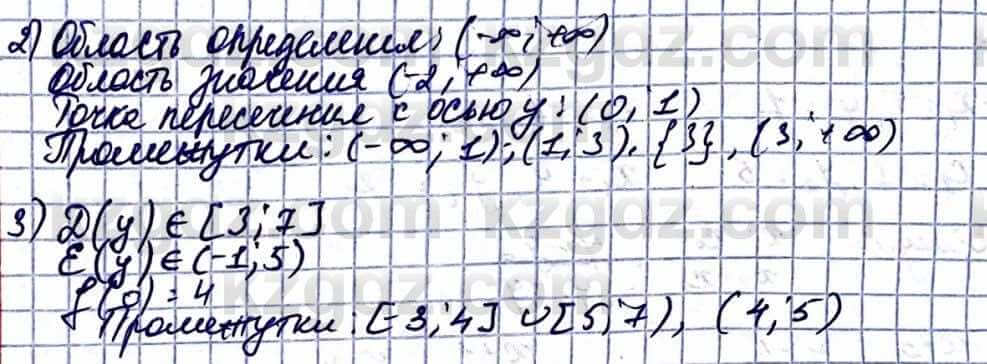 2) Область определения: (-∞; +∞)
Область значения (-2; +∞)
Точка пересечения с осью y: (0; 1)
Промежутки: (-∞; 1); (1; 3), {3}, (3; +∞)
3) D(y) ∈ [3; 7]
E(y) ∈ (-1; 5)
f(0) = 4
Промежутки: [-3; 4] ∪ [5; 7), (4; 5)
kzgdz.com